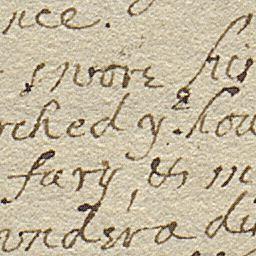 nce.
swore his
rched ye hou
fary, & m
vndera di